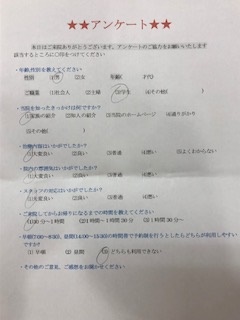 ★★アンケート★★
本日はご来院ありがとうございます。アンケートのご協力をお願いいたします
該当するところに〇印をつけてください
・年齢,性別を教えてください
性別 ①男 ②女 年齢( )才
ご職業 ①社会人 ②主婦 ③学生 ④その他( )
・当院を知ったきっかけは何ですか?
①家族の紹介 ②知人の紹介 ③当院のホームページ ④通りがかり
⑤その他( )
・治療内容はいかがでしたか?
①大変良い ②良い ③普通 ④悪い ⑤よくわからない
・院内の雰囲気はいかがでしたか?
①大変良い ②良い ③普通 ④悪い
・スタッフの対応はいかがでしたか?
①大変良い ②良い ③普通 ④悪い
・ご来院してからお帰りになるまでの時間を教えてください
①30分～1時間 ②1時間～1時間30分 ③1時間30分～
ですか?
①早朝 ②昼間 ③どちらも利用できない
・その他のご意見、ご感想をお聞かせください